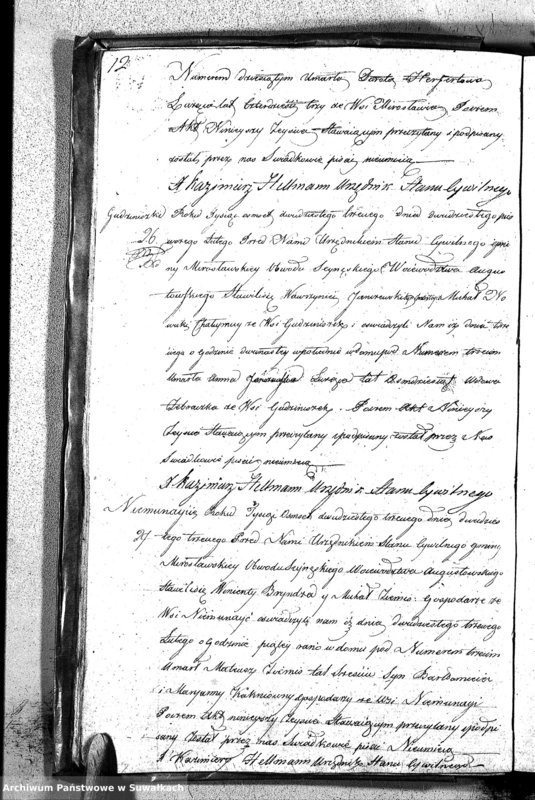 12
Numerem dziesiątym Umarła Dorota Herfertowa
licząca lat Czterdzieści trzy ze Wsi Mirosławia Poczem
Akt Niniejszy Zeyściа Stawaiącym przeczytany i podpisany
został przez nas Swiadkowie pisać nieumieią
X Kazimierz Hellmann Urzędnik Stanu Cywilnego
Gudziniszki Roku Tysiąc osmset dwudziestego trzeciego dnia dwudziestego pier
26. wszego Lutego Przed Nami Urzędnikiem Stanu Cywilnego Gmi
ny Mirosławskiey Obwodu Seyneskiego Woiewodztwa Augus
towskiego Stawiliśię Wawrzyniec i Michał No
wak, Chałupnicy ze Wsi Gudziniszek i oswiadczyli Nam iż dnia
o godzinie dwunastey w południe w domu pod Numerem trzecim
Umarła Anna licząca lat Osmdziesiąt Wdowa
Żebraczka ze Wsi Gudziniszek. Poczem Akt Niniejszy
Zeyścia Stawaiącym przeczytany i podpisany został przez Nas
Swiadkowie pisać nieumieią
X Kazimierz Hellmann Urzędnik Stanu Cywilnego
Niemunajcie Roku Tysiąc Osmset dwudziestego trzeciego dnia dwudzies
27. tego trzeciego Przed Nami Urzędnikiem Stanu Cywilnego gminy
Mirosławskiey Obwodu Seyneskiego Woiewodztwa Augustowskiego
Stawiliśię Wincenty Bryndza y Michał Gospodarze ze
Wsi Niemunajcie oswiadczyli nam iż dnia dwudziestego trzeciego
Lutego o godzinie piątey rano w domu pod Numerem trzecim
Umarł Mateusz lat Syn Bartłomieia
i Maryanny gospodarzy ze Wsi Niemunajci
Poczem Akt niniejszy Zeyścia Stawaiącym przeczytany i podpi
sany Został przez nas Swiadkowie pisać Nieumieią
X Kazimierz Hellmann Urzędnik Stanu Cywilnego
Archiwum Państwowe w Suwałkach